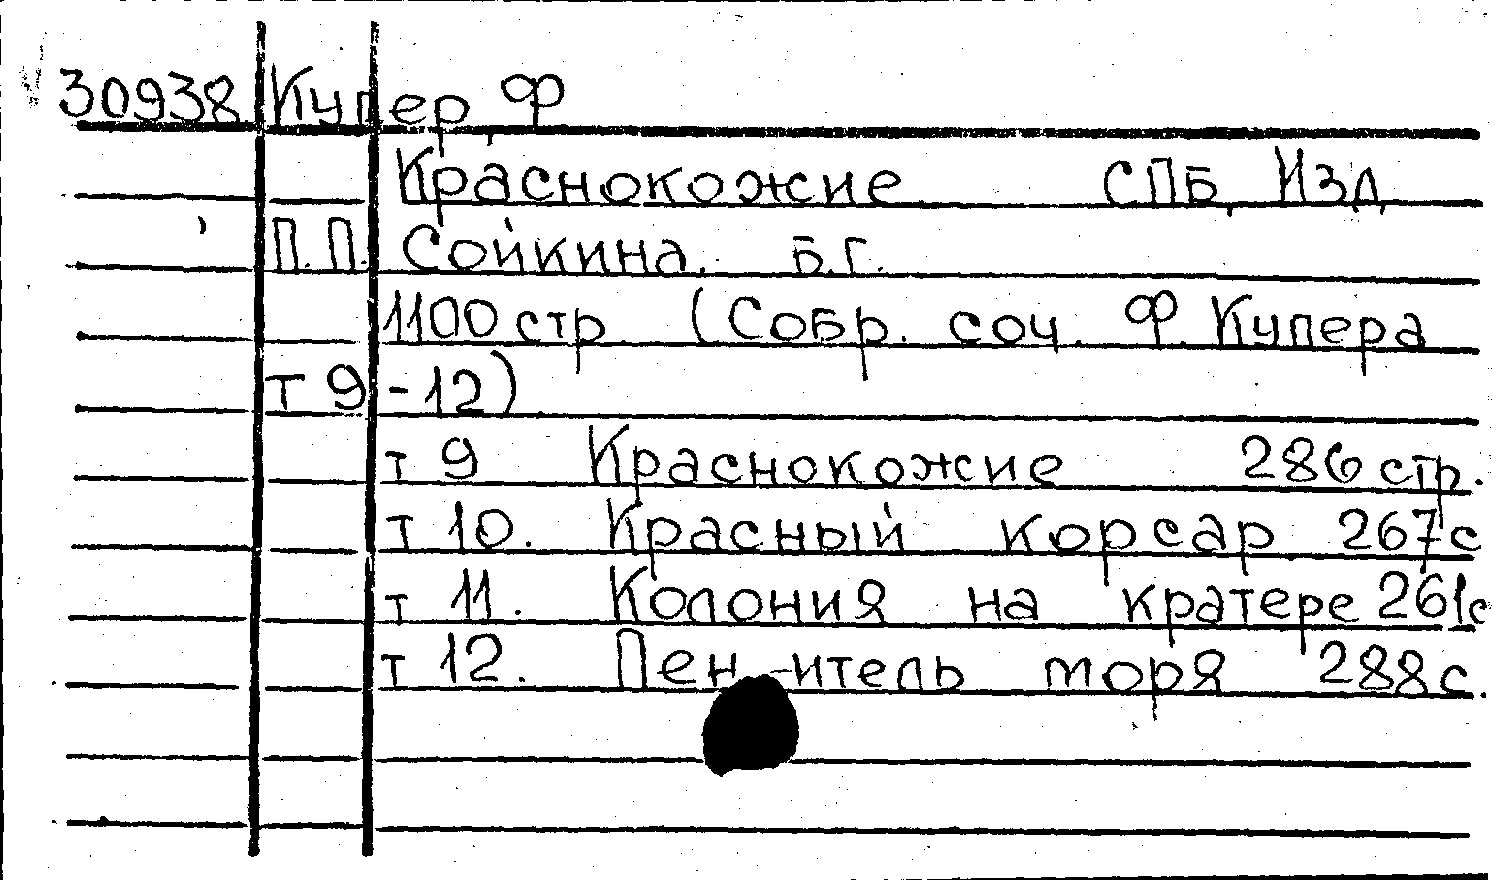 30938 Купер, Ф
Краснокожие СПБ, Изд,
П.П. Сойкина. б.г.
1100 стр. (Собр. соч. Ф. Купера
т 9-12)
т 9 Краснокожие 286 стр.
т 10. Красный корсар 267с
т 11. Колония на кратере 261с
т 12. моря 288с.